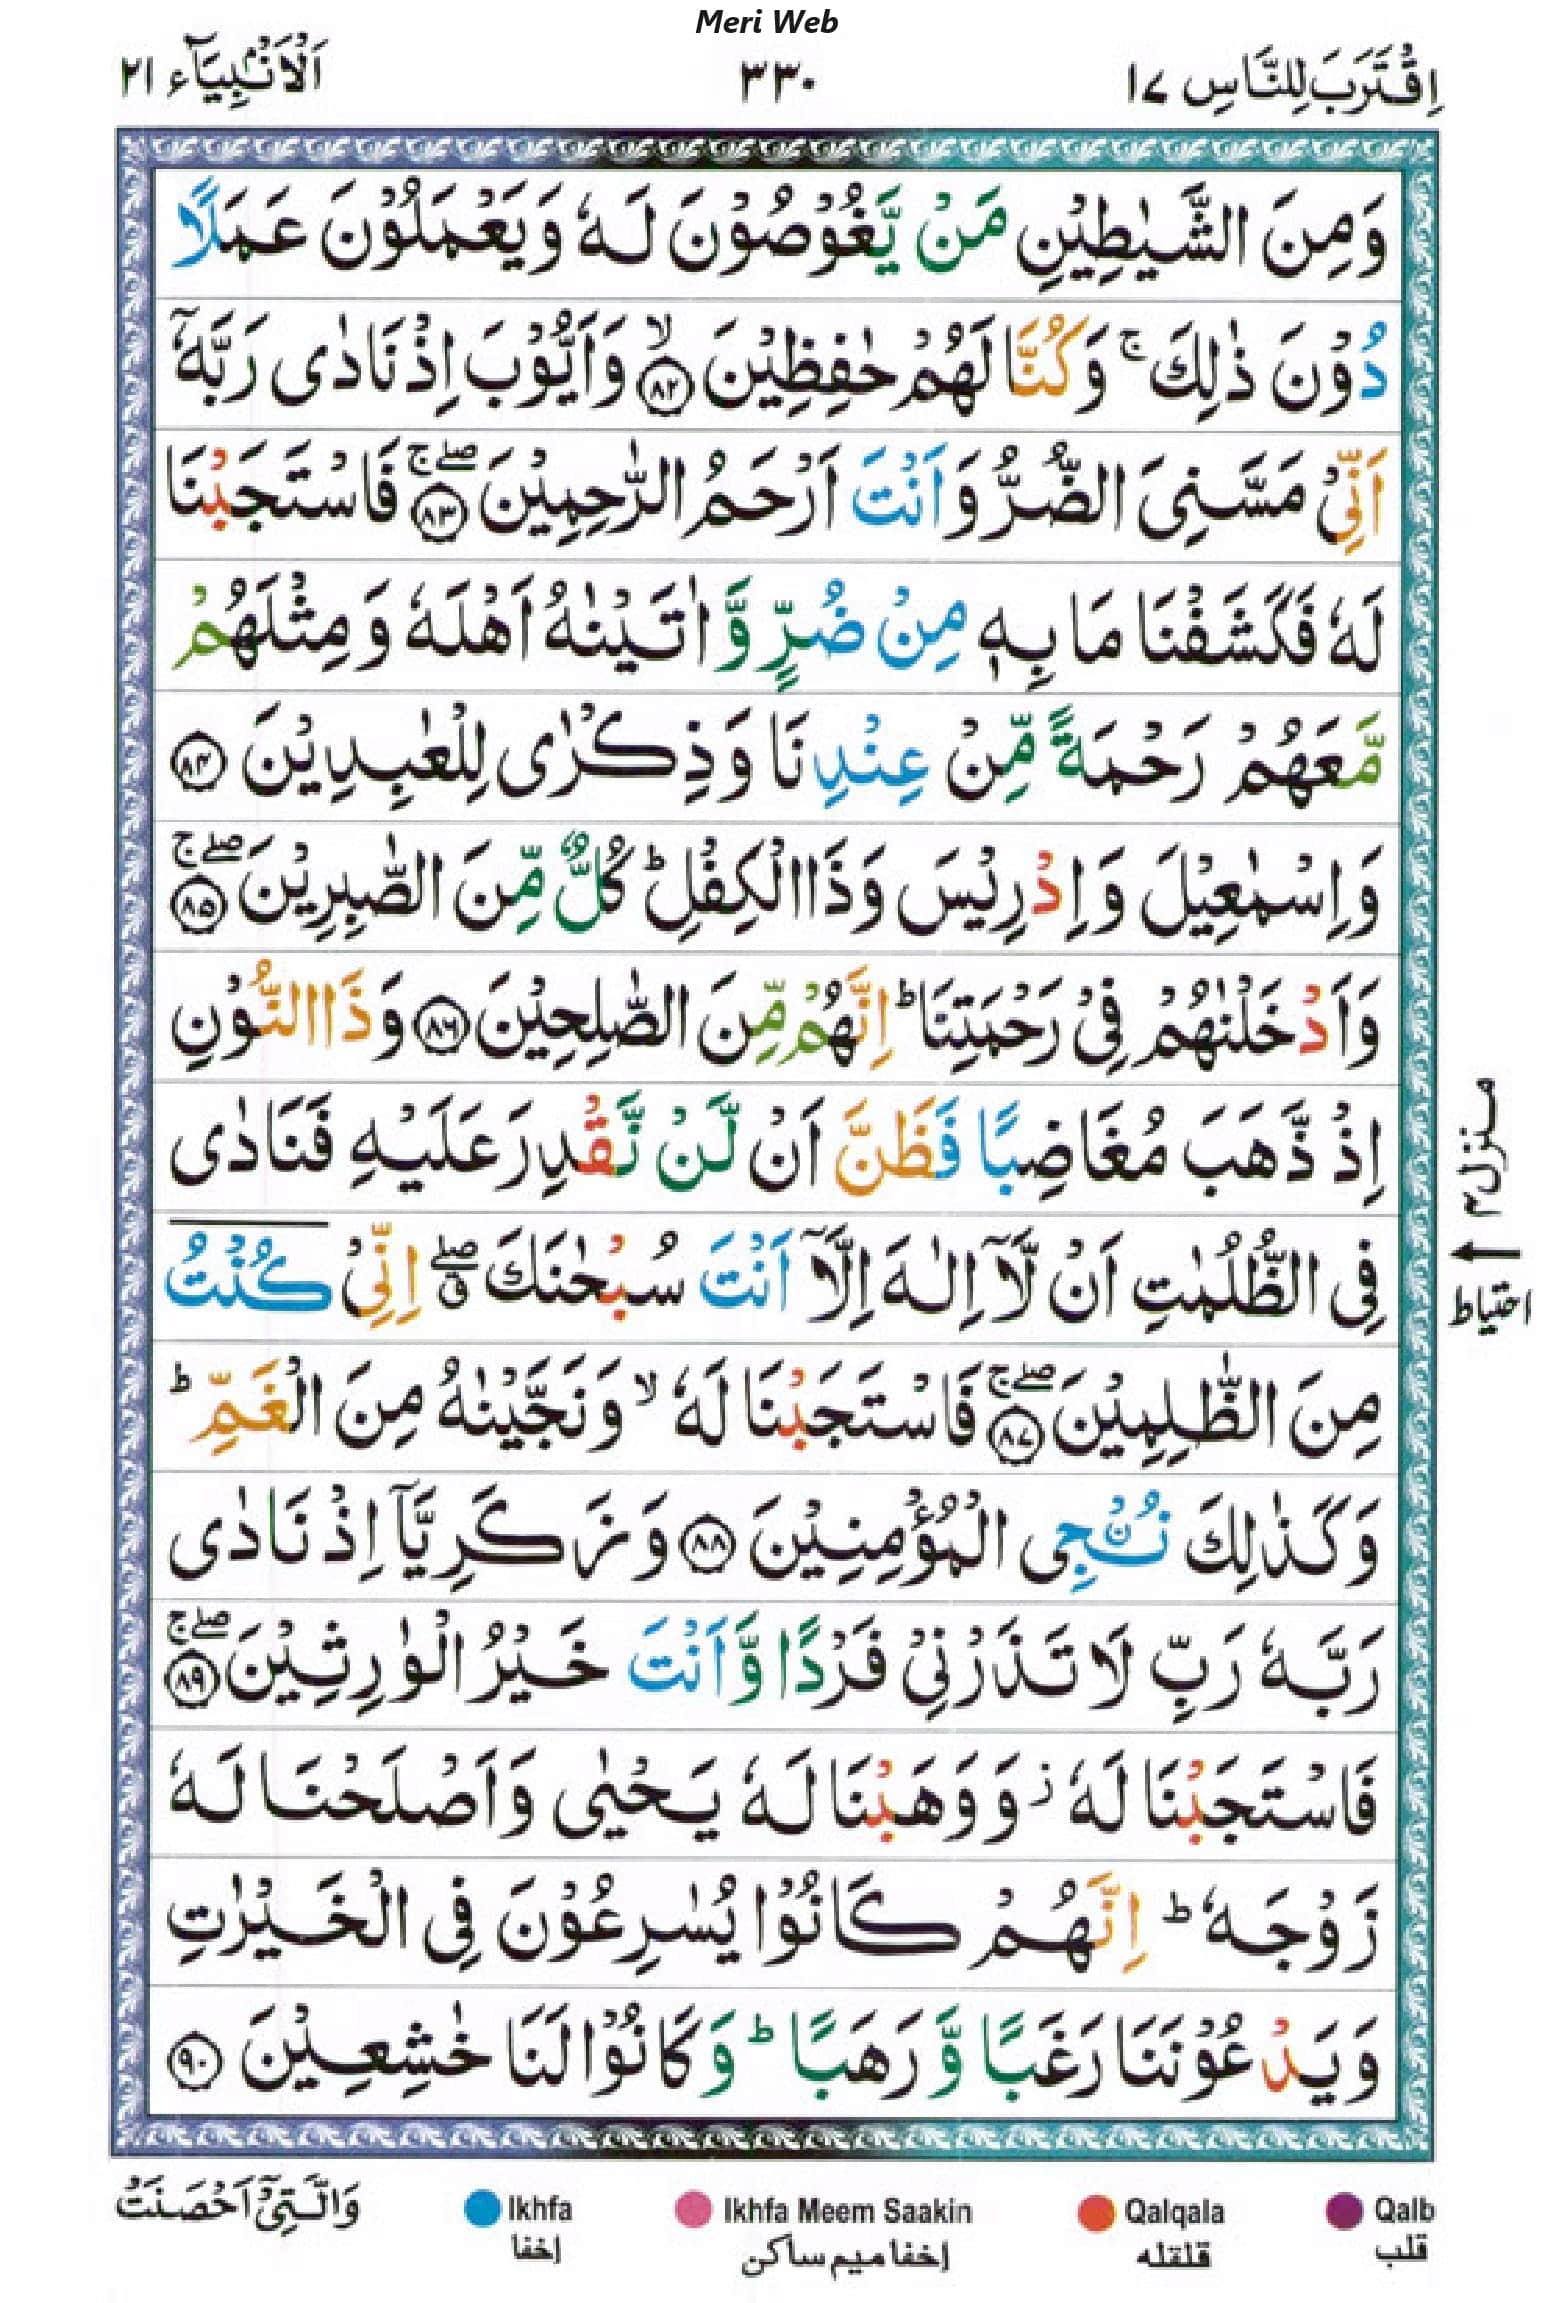 Meri Web
اِقْتَرَبَ لِلنَّاسِ ١٧
٣٣٠
اَلْاَنْۢبِيَآء ٢١
وَمِنَ الشَّيٰطِيْنِ مَنْ يَّغُوْصُوْنَ لَهٗ وَيَعْمَلُوْنَ عَمَلًا
دُوْنَ ذٰلِكَ ۚ وَكُنَّا لَهُمْ حٰفِظِيْنَ ۙ﴿٨٢﴾ وَاَيُّوْبَ اِذْ نَادٰى رَبَّهٗۤ
اَنِّىْ مَسَّنِىَ الضُّرُّ وَاَنْتَ اَرْحَمُ الرّٰحِمِيْنَ ۖۚ﴿٨٣﴾ فَاسْتَجَبْنَا
لَهٗ فَكَشَفْنَا مَا بِهٖ مِنْ ضُرٍّ وَّاٰتَيْنٰهُ اَهْلَهٗ وَمِثْلَهُمْ
مَّعَهُمْ رَحْمَةً مِّنْ عِنْدِنَا وَذِكْرٰى لِلْعٰبِدِيْنَ ﴿٨٤﴾
وَاِسْمٰعِيْلَ وَاِدْرِيْسَ وَذَا الْكِفْلِ ؕ كُلٌّ مِّنَ الصّٰبِرِيْنَ ۖۚ﴿٨٥﴾
وَاَدْخَلْنٰهُمْ فِىْ رَحْمَتِنَا ؕ اِنَّهُمْ مِّنَ الصّٰلِحِيْنَ ﴿٨٦﴾ وَذَا النُّوْنِ
اِذْ ذَّهَبَ مُغَاضِبًا فَظَنَّ اَنْ لَّنْ نَّقْدِرَ عَلَيْهِ فَنَادٰى
فِى الظُّلُمٰتِ اَنْ لَّاۤ اِلٰهَ اِلَّاۤ اَنْتَ سُبْحٰنَكَ ۖۗ اِنِّىْ كُنْتُ
مِنَ الظّٰلِمِيْنَ ۖۚ﴿٨٧﴾ فَاسْتَجَبْنَا لَهٗ ۙ وَنَجَّيْنٰهُ مِنَ الْغَمِّ ؕ
وَكَذٰلِكَ نُـنْجِى الْمُؤْمِنِيْنَ ﴿٨٨﴾ وَزَكَرِيَّاۤ اِذْ نَادٰى
رَبَّهٗ رَبِّ لَا تَذَرْنِىْ فَرْدًا وَّاَنْتَ خَيْرُ الْوٰرِثِيْنَ ۖۚ﴿٨٩﴾
فَاسْتَجَبْنَا لَهٗ ز وَوَهَبْنَا لَهٗ يَحْيٰى وَاَصْلَحْنَا لَهٗ
زَوْجَهٗ ؕ اِنَّهُمْ كَانُوْا يُسٰرِعُوْنَ فِى الْخَيْرٰتِ
وَيَدْعُوْنَنَا رَغَبًا وَّرَهَبًا ؕ وَكَانُوْا لَنَا خٰشِعِيْنَ ﴿٩٠﴾
منزل۴
احتیاط
وَالَّتِىْۤ اَحْصَنَتْ
Ikhfa
اِخفا
Ikhfa Meem Saakin
اِخفا میم ساکن
Qalqala
قلقله
Qalb
قلب